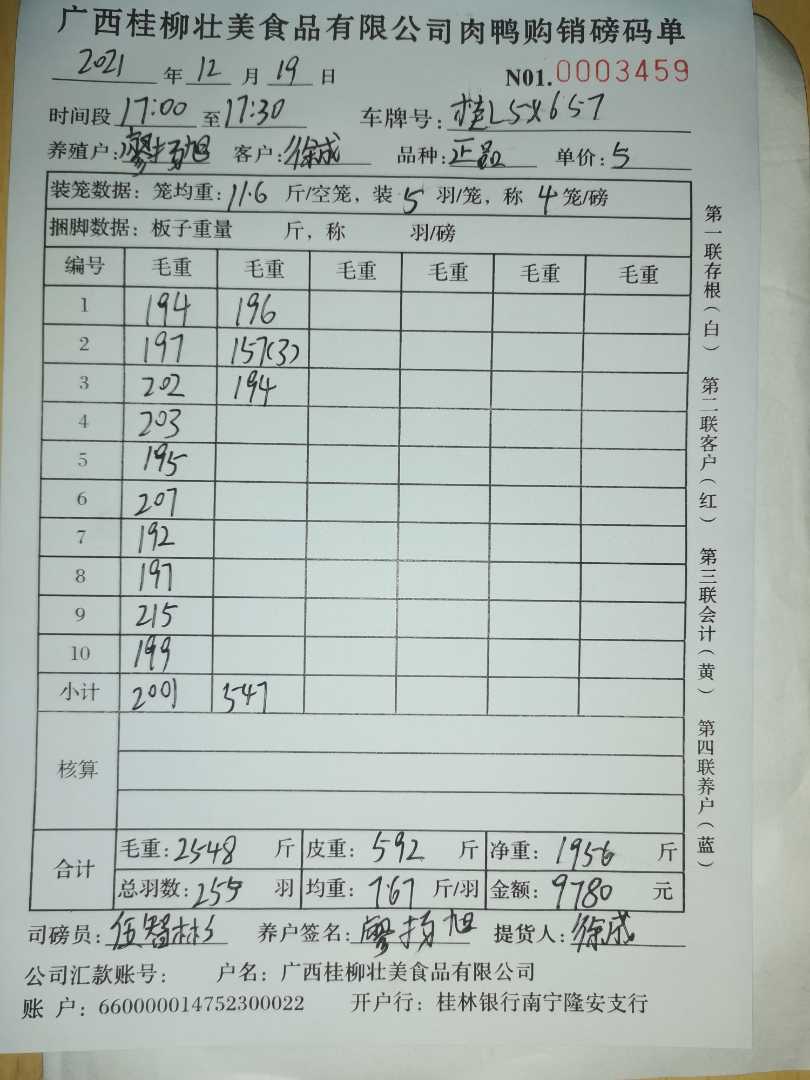 广西桂柳壮美食品有限公司肉鸭购销磅码单
2021 年 12 月 19 日 N01.0003459
时间段 17:00 至 17:30 车牌号: 桂L5X657
养殖户: 廖扬旭 客户: 徐成 品种: 正品 单价: 5
装笼数据: 笼均重: 11.6 斤/空笼, 装 5 羽/笼, 称 4 笼/磅
捆脚数据: 板子重量 斤, 称 羽/磅
编号 毛重 毛重 毛重 毛重 毛重 毛重
1 194 196
2 197 157(3)
3 202 194
4 203
5 195
6 207
7 192
8 197
9 215
10 199
小计 2001 547
核算
合计 毛重: 2548 斤 皮重: 592 斤 净重: 1956 斤
总羽数: 255 羽 均重: 7.67 斤/羽 金额: 9780 元
司磅员: 伍智彬 养户签名: 廖扬旭 提货人: 徐成
公司汇款账号: 户名: 广西桂柳壮美食品有限公司
账 户: 660000014752300022 开户行: 桂林银行南宁隆安支行
第一联存根(白) 第二联客户(红) 第三联会计(黄) 第四联养户(蓝)